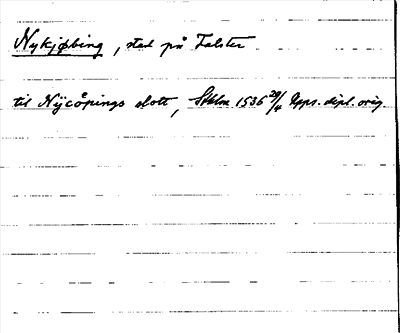 Nykjøbing, stad på Falster
til Nÿcöpings slott, Sthlm 1536 29/4 Upps. dipl. orig.